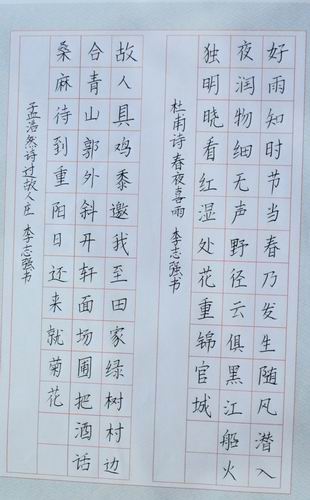 好雨知时节当春乃发生随风潜入
夜润物细无声野径云俱黑江船火
独明晓看红湿处花重锦官城
杜甫诗 春夜喜雨 李志强书
故人具鸡黍邀我至田家绿树村边
合青山郭外斜开轩面场圃把酒话
桑麻待到重阳日还来就菊花
孟浩然诗过故人庄 李志强书